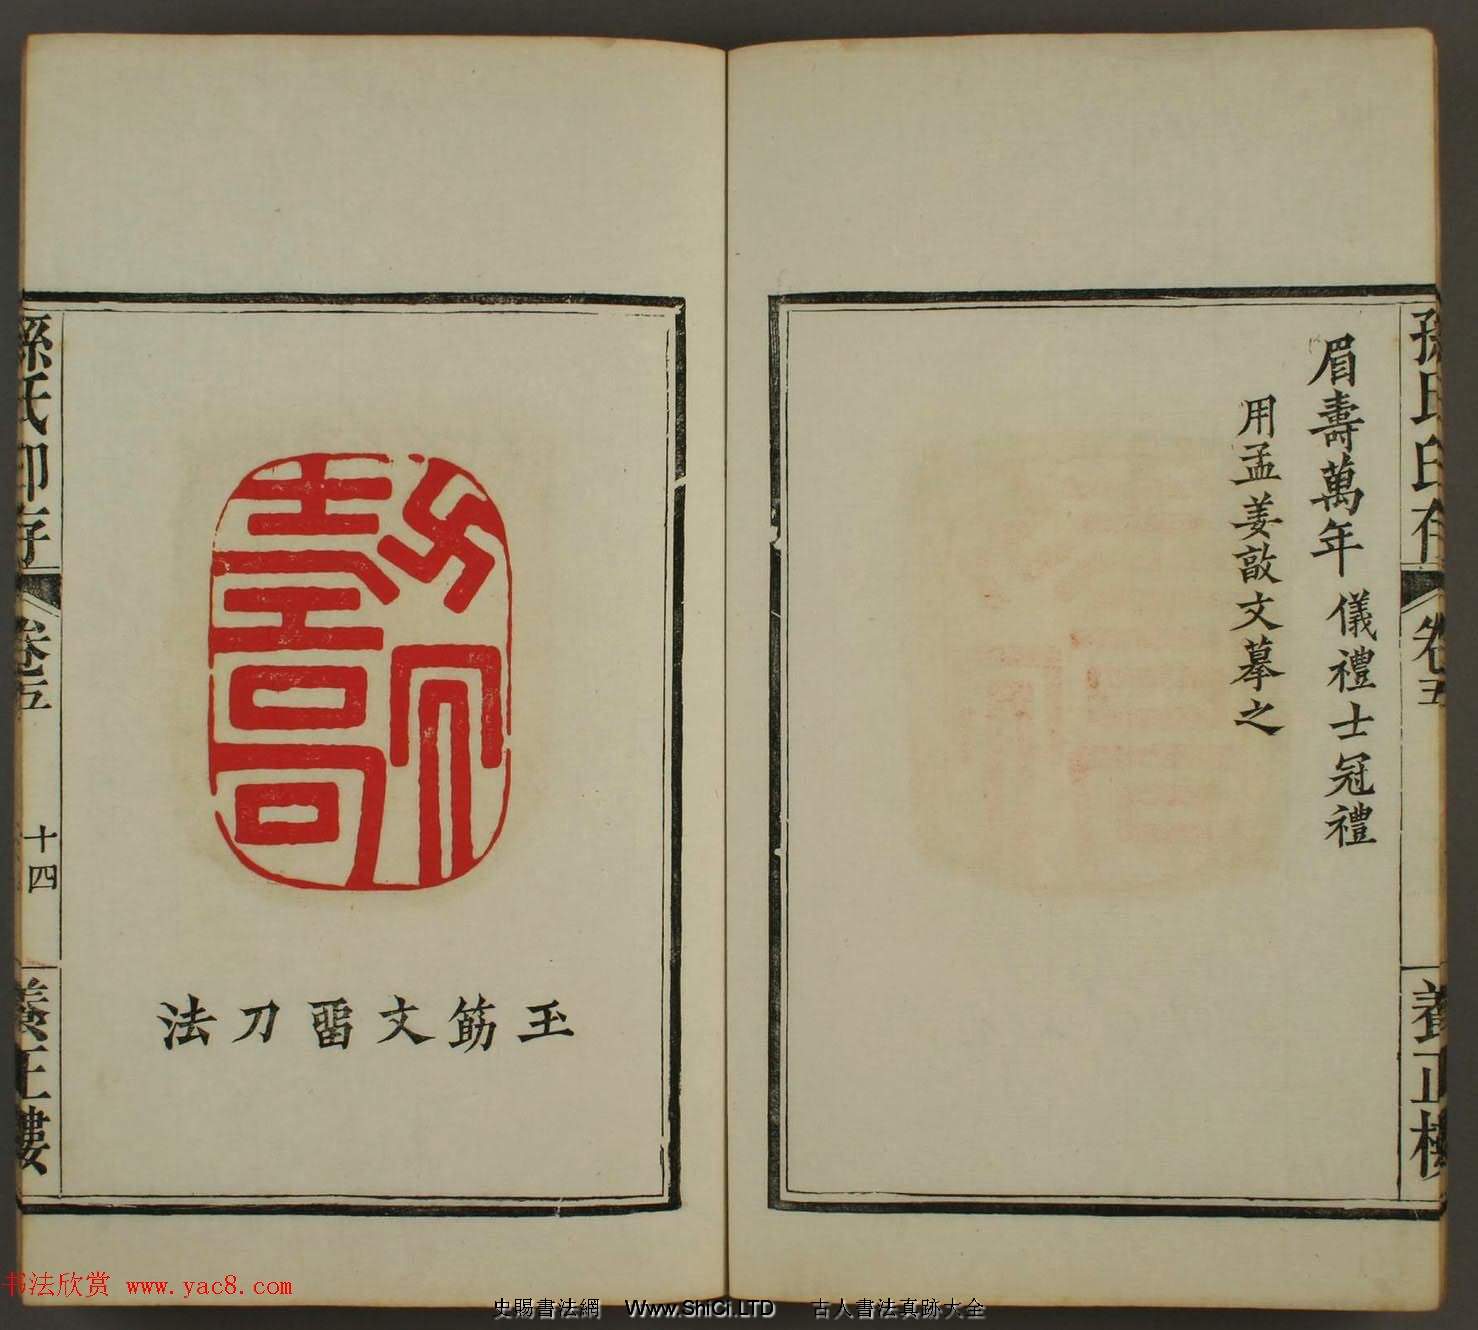 孫氏印存
卷五
養正樓
眉壽萬年 儀禮士冠禮
用孟姜敦文摹之
玉筯文畱刀法
孫氏印存
卷五
十四
養正樓
书法欣赏 www.yac8.com
史賜書法網 Www.ShiCi.LTD 古人書法真跡大全